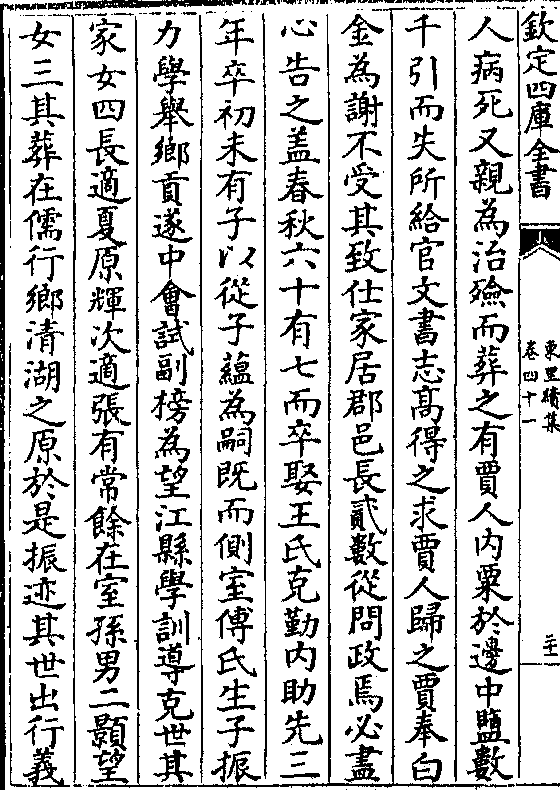 欽定四庫全書
東里續集
卷四十一
二十
人病死又親為治殮而葬之有賈人内粟於邊中鹽數
千引而失所給官文書志髙得之求賈人歸之賈奉白
金為謝不受其致仕家居郡邑長貳數從問政焉必盡
心告之盖春秋六十有七而卒娶王氏克勤内助先三
年卒初未有子以從子藴為嗣既而側室傅氏生子振
力學舉鄉貢遂中會試副榜為望江縣學訓導克世其
家女四長適夏原輝次適張有常餘在室孫男二顥望
女三其葬在儒行鄉清湖之原於是振迹其世出行義